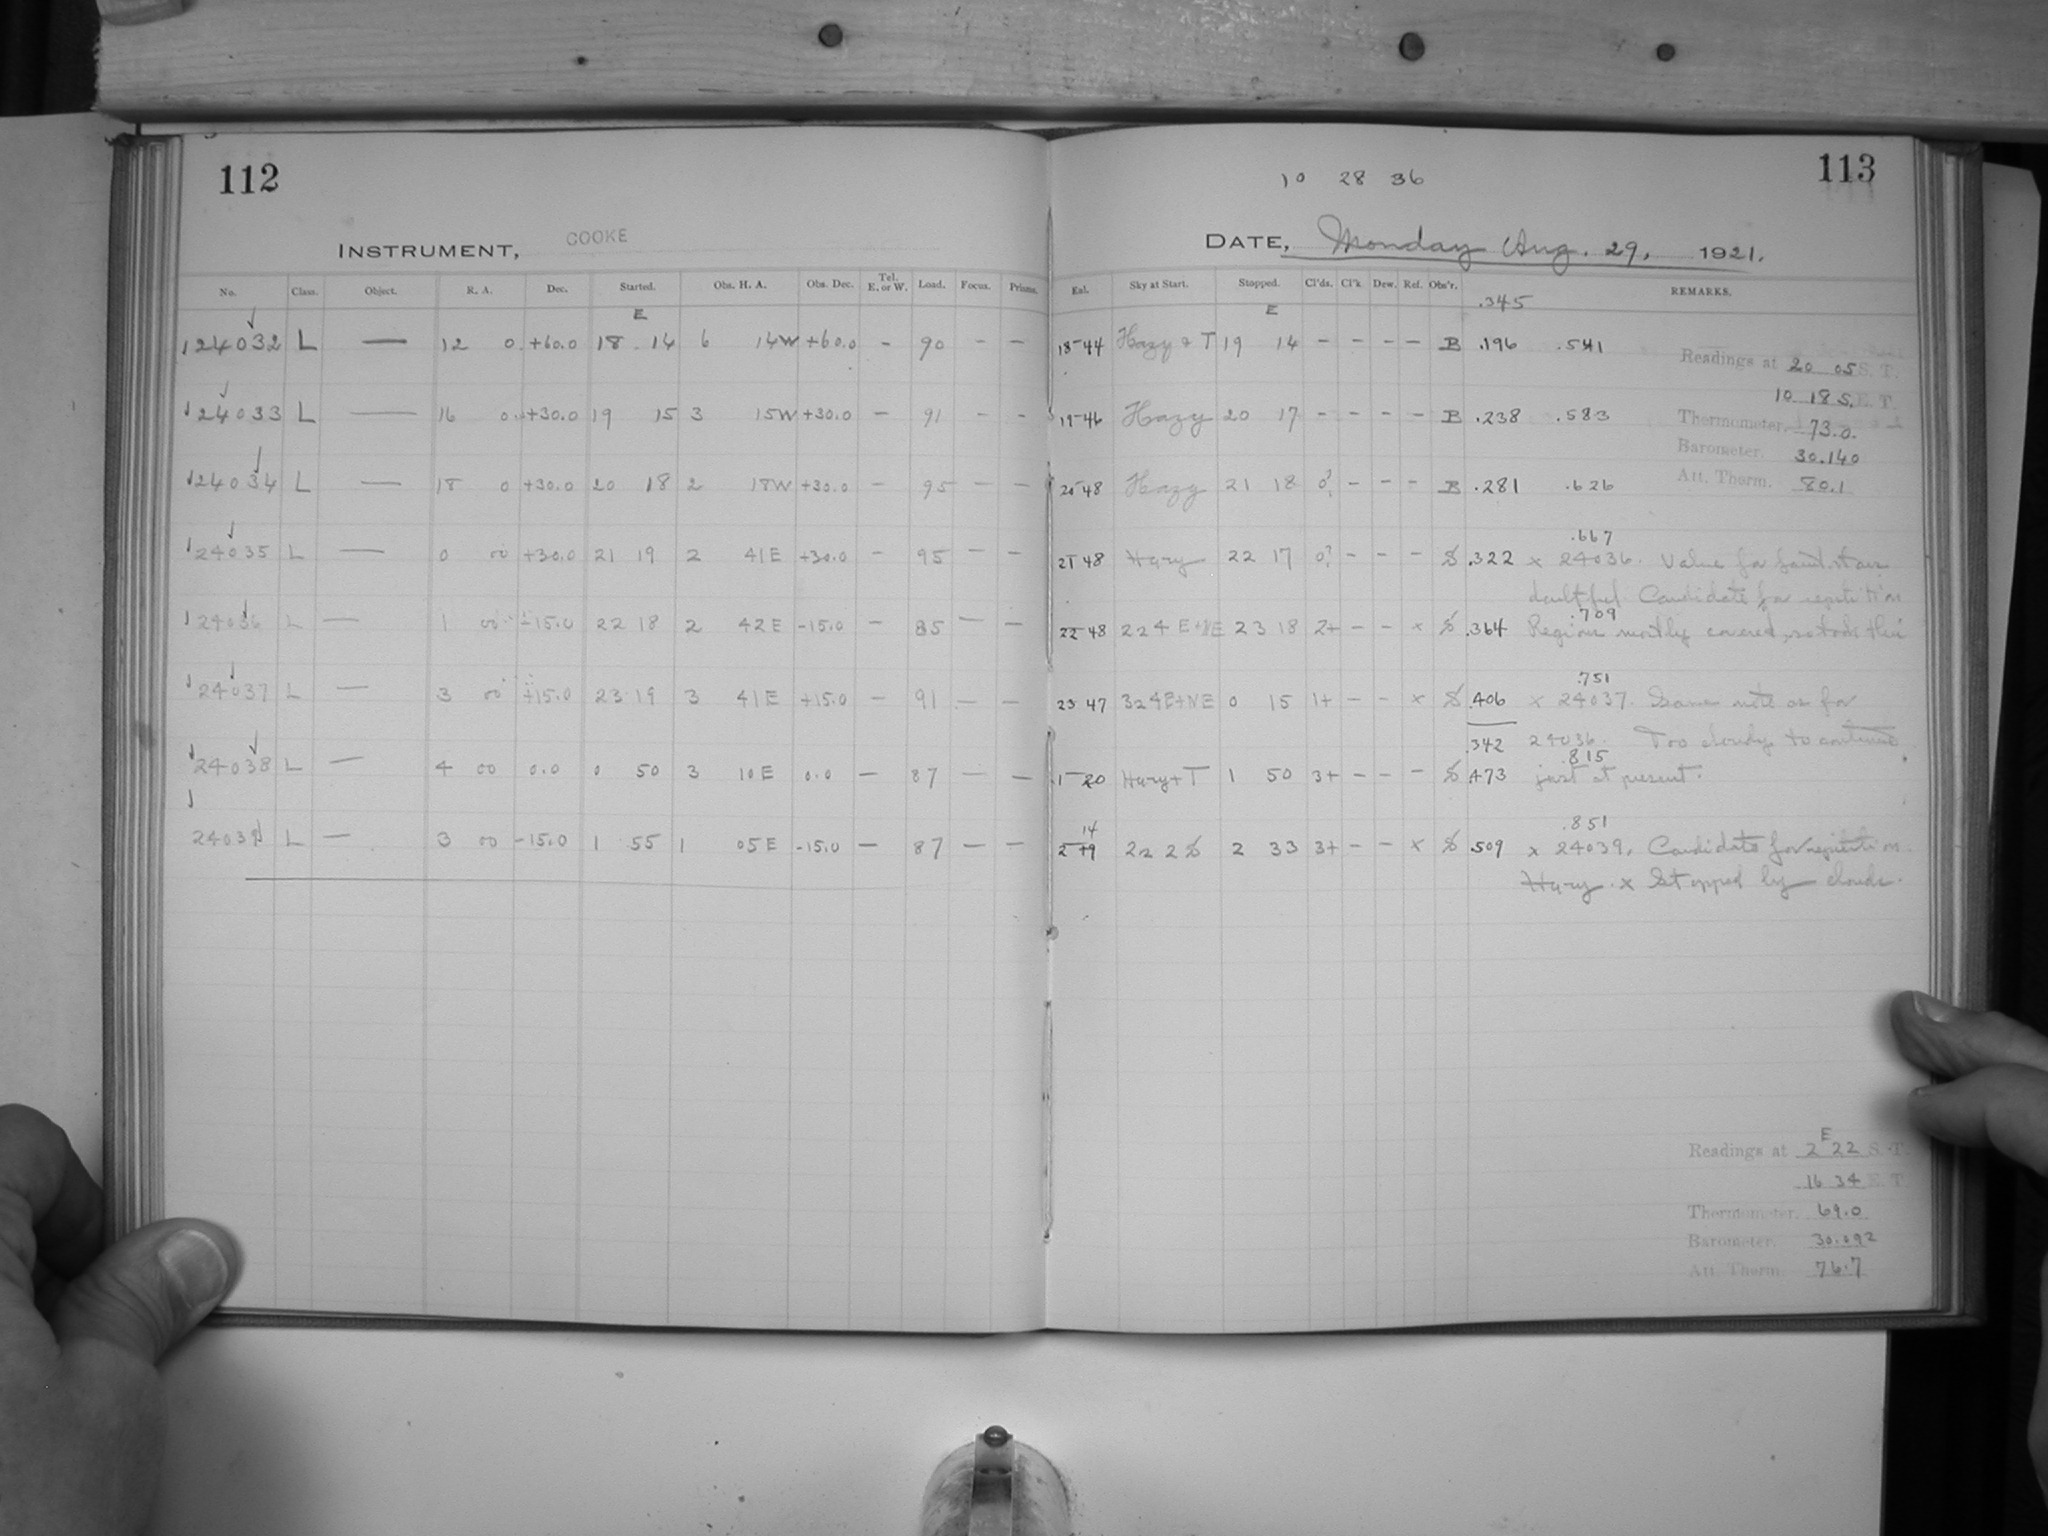 112
INSTRUMENT, COOKE
No. Class. Object. R. A. Dec. Started. Obs. H. A. Obs. Dec. Tel. E. or W. Load. Focus. Prisms.
E
24032 L — 12 0 +60.0 18 14 6 14W +60.0 - 90 - -
24033 L — 16 0 +30.0 19 15 3 15W +30.0 - 91 - -
24034 L — 18 0 +30.0 20 18 2 18W +30.0 - 95 - -
24035 L — 0 00 +30.0 21 19 2 41E +30.0 - 95 - -
24036 L — 1 00 -15.0 22 18 2 42E -15.0 - 85 - -
24037 L — 3 00 +15.0 23 19 3 41E +15.0 - 91 - -
24038 L — 4 00 0.0 0 50 3 10E 0.0 - 87 - -
24039 L — 3 00 -15.0 1 55 1 05E -15.0 - 87 - -
113
10 28 36
DATE, Monday Aug. 29, 1921.
Sky at Start. Stopped. Cl'ds. Cl'k Dew. Ref. Obs'r. REMARKS.
E .345
18 44 Hazy & T 19 14 - - - - B .196 .541
19 46 Hazy 20 17 - - - - B .238 .583
20 48 Hazy 21 18 0? - - - B .281 .626
.667
21 48 Hazy 22 17 0? - - - S .322 x 24036. Value for faint stars
doubtful. Candidate for repetition
.709
22 48 2 2 4 E+NE 23 18 2+ - - x S .364 Region mostly covered, so took this
.751
23 47 3 2 4 E+NE 0 15 1+ - - x S .406 x 24037. Same note as for
.342 24036. Too cloudy to continue
.815
1 20 Hazy+T 1 50 3+ - - - S .473 just at present.
14 .851
2 2 2 2 S 2 33 3+ - - x S .509 x 24039. Candidate for repetition.
Hazy. x Stopped by clouds.
Readings at 20 05 S. T.
10 18 S. E. T.
Thermometer. 73.0
Barometer. 30.140
Att. Therm. 80.1
E
Readings at 2 22 S. T.
16 34 E. T.
Thermometer. 69.0
Barometer. 30.092
Att. Therm. 76.7